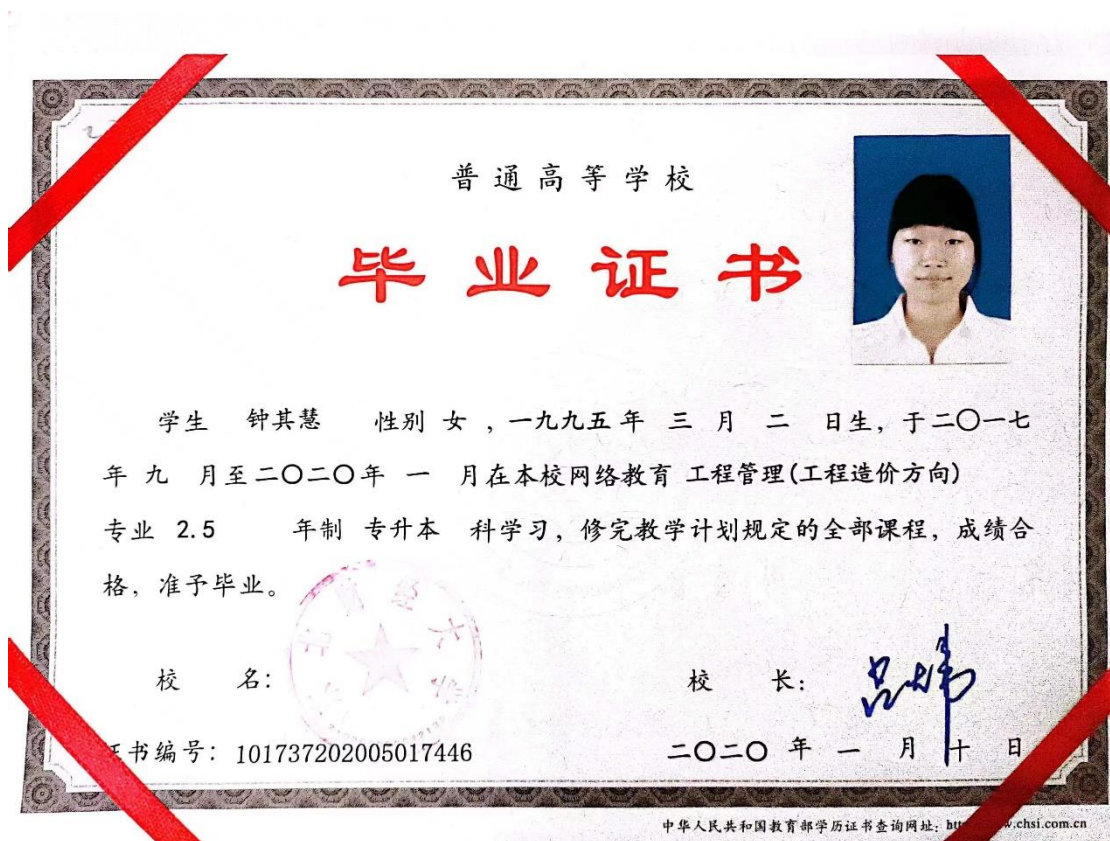 普通高等学校
毕业证书
学生 钟其慧 性别 女 ，一九九五年 三 月 二 日生，于二〇一七
年 九 月至二〇二〇年 一 月在本校网络教育 工程管理(工程造价方向)
专业 2.5 年制 专升本 科学习，修完教学计划规定的全部课程，成绩合
格，准予毕业。
校 名：
校 长：
书编号：101737202005017446
二〇二〇 年 一 月 十 日
中华人民共和国教育部学历证书查询网址：ht w.chsi.com.cn